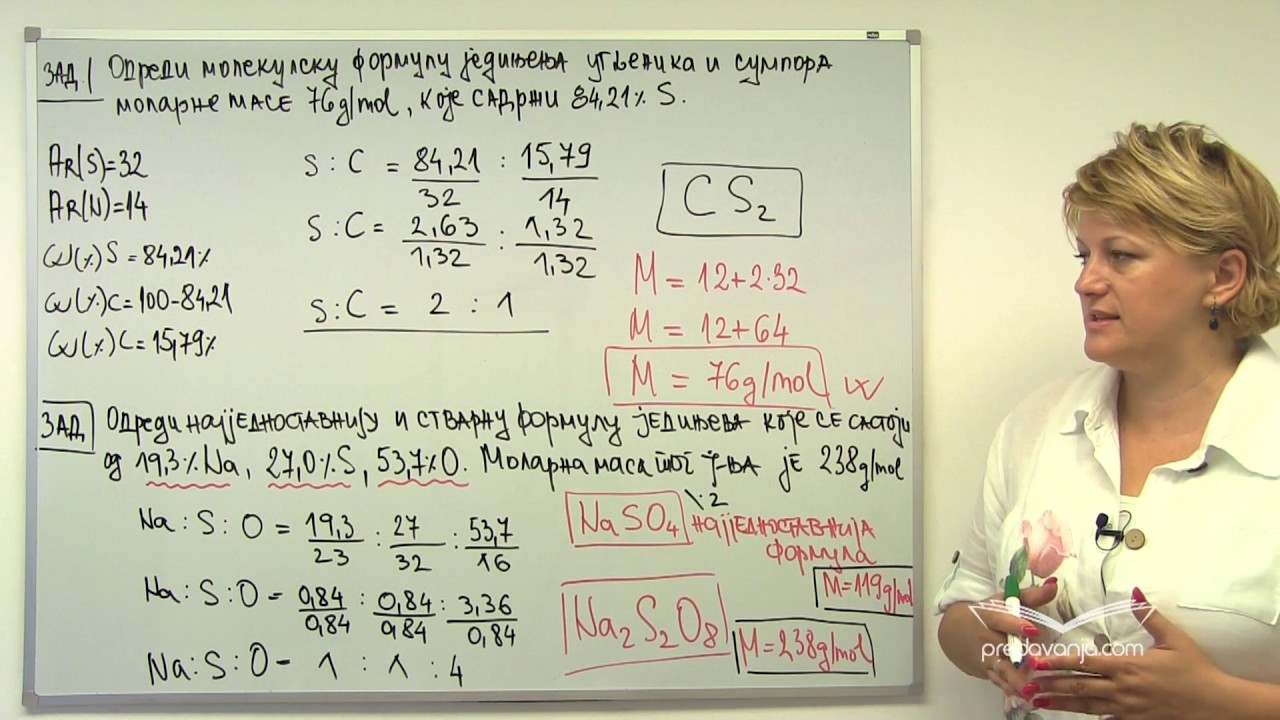 ЗАД | Одреди молекулску формулу једињења угљеника и сумпора
моларне масе 76g/mol, које садржи 84,21% S.
Ar(S)=32
Ar(N)=14
ω(%)S = 84,21%
ω(%)C = 100-84,21
ω(%)C = 15,79%
S : C = 84,21/32 : 15,79/14
S : C = 2,63/1,32 : 1,32/1,32
S : C = 2 : 1
CS₂
M = 12+2·32
M = 12+64
M = 76g/mol
ЗАД Одреди најједноставнију и стварну формулу једињења које се састоји
од 19,3% Na, 27,0% S, 53,7% O. Моларна маса тог ј-ња је 238g/mol
Na : S : O = 19,3/23 : 27/32 : 53,7/16
Na : S : O = 0,84/0,84 : 0,84/0,84 : 3,36/0,84
Na : S : O = 1 : 1 : 4
NaSO₄ \·2 најједноставнија
формула
M=119g/mol
Na₂S₂O₈
M=238g/mol
predavanja.com